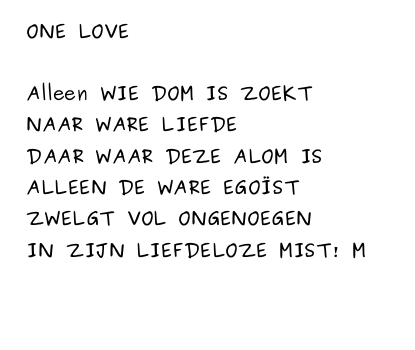 ONE LOVE
Alleen WIE DOM IS ZOEKT
NAAR WARE LIEFDE
DAAR WAAR DEZE ALOM IS
ALLEEN DE WARE EGOÏST
ZWELGT VOL ONGENOEGEN
IN ZIJN LIEFDELOZE MIST! M